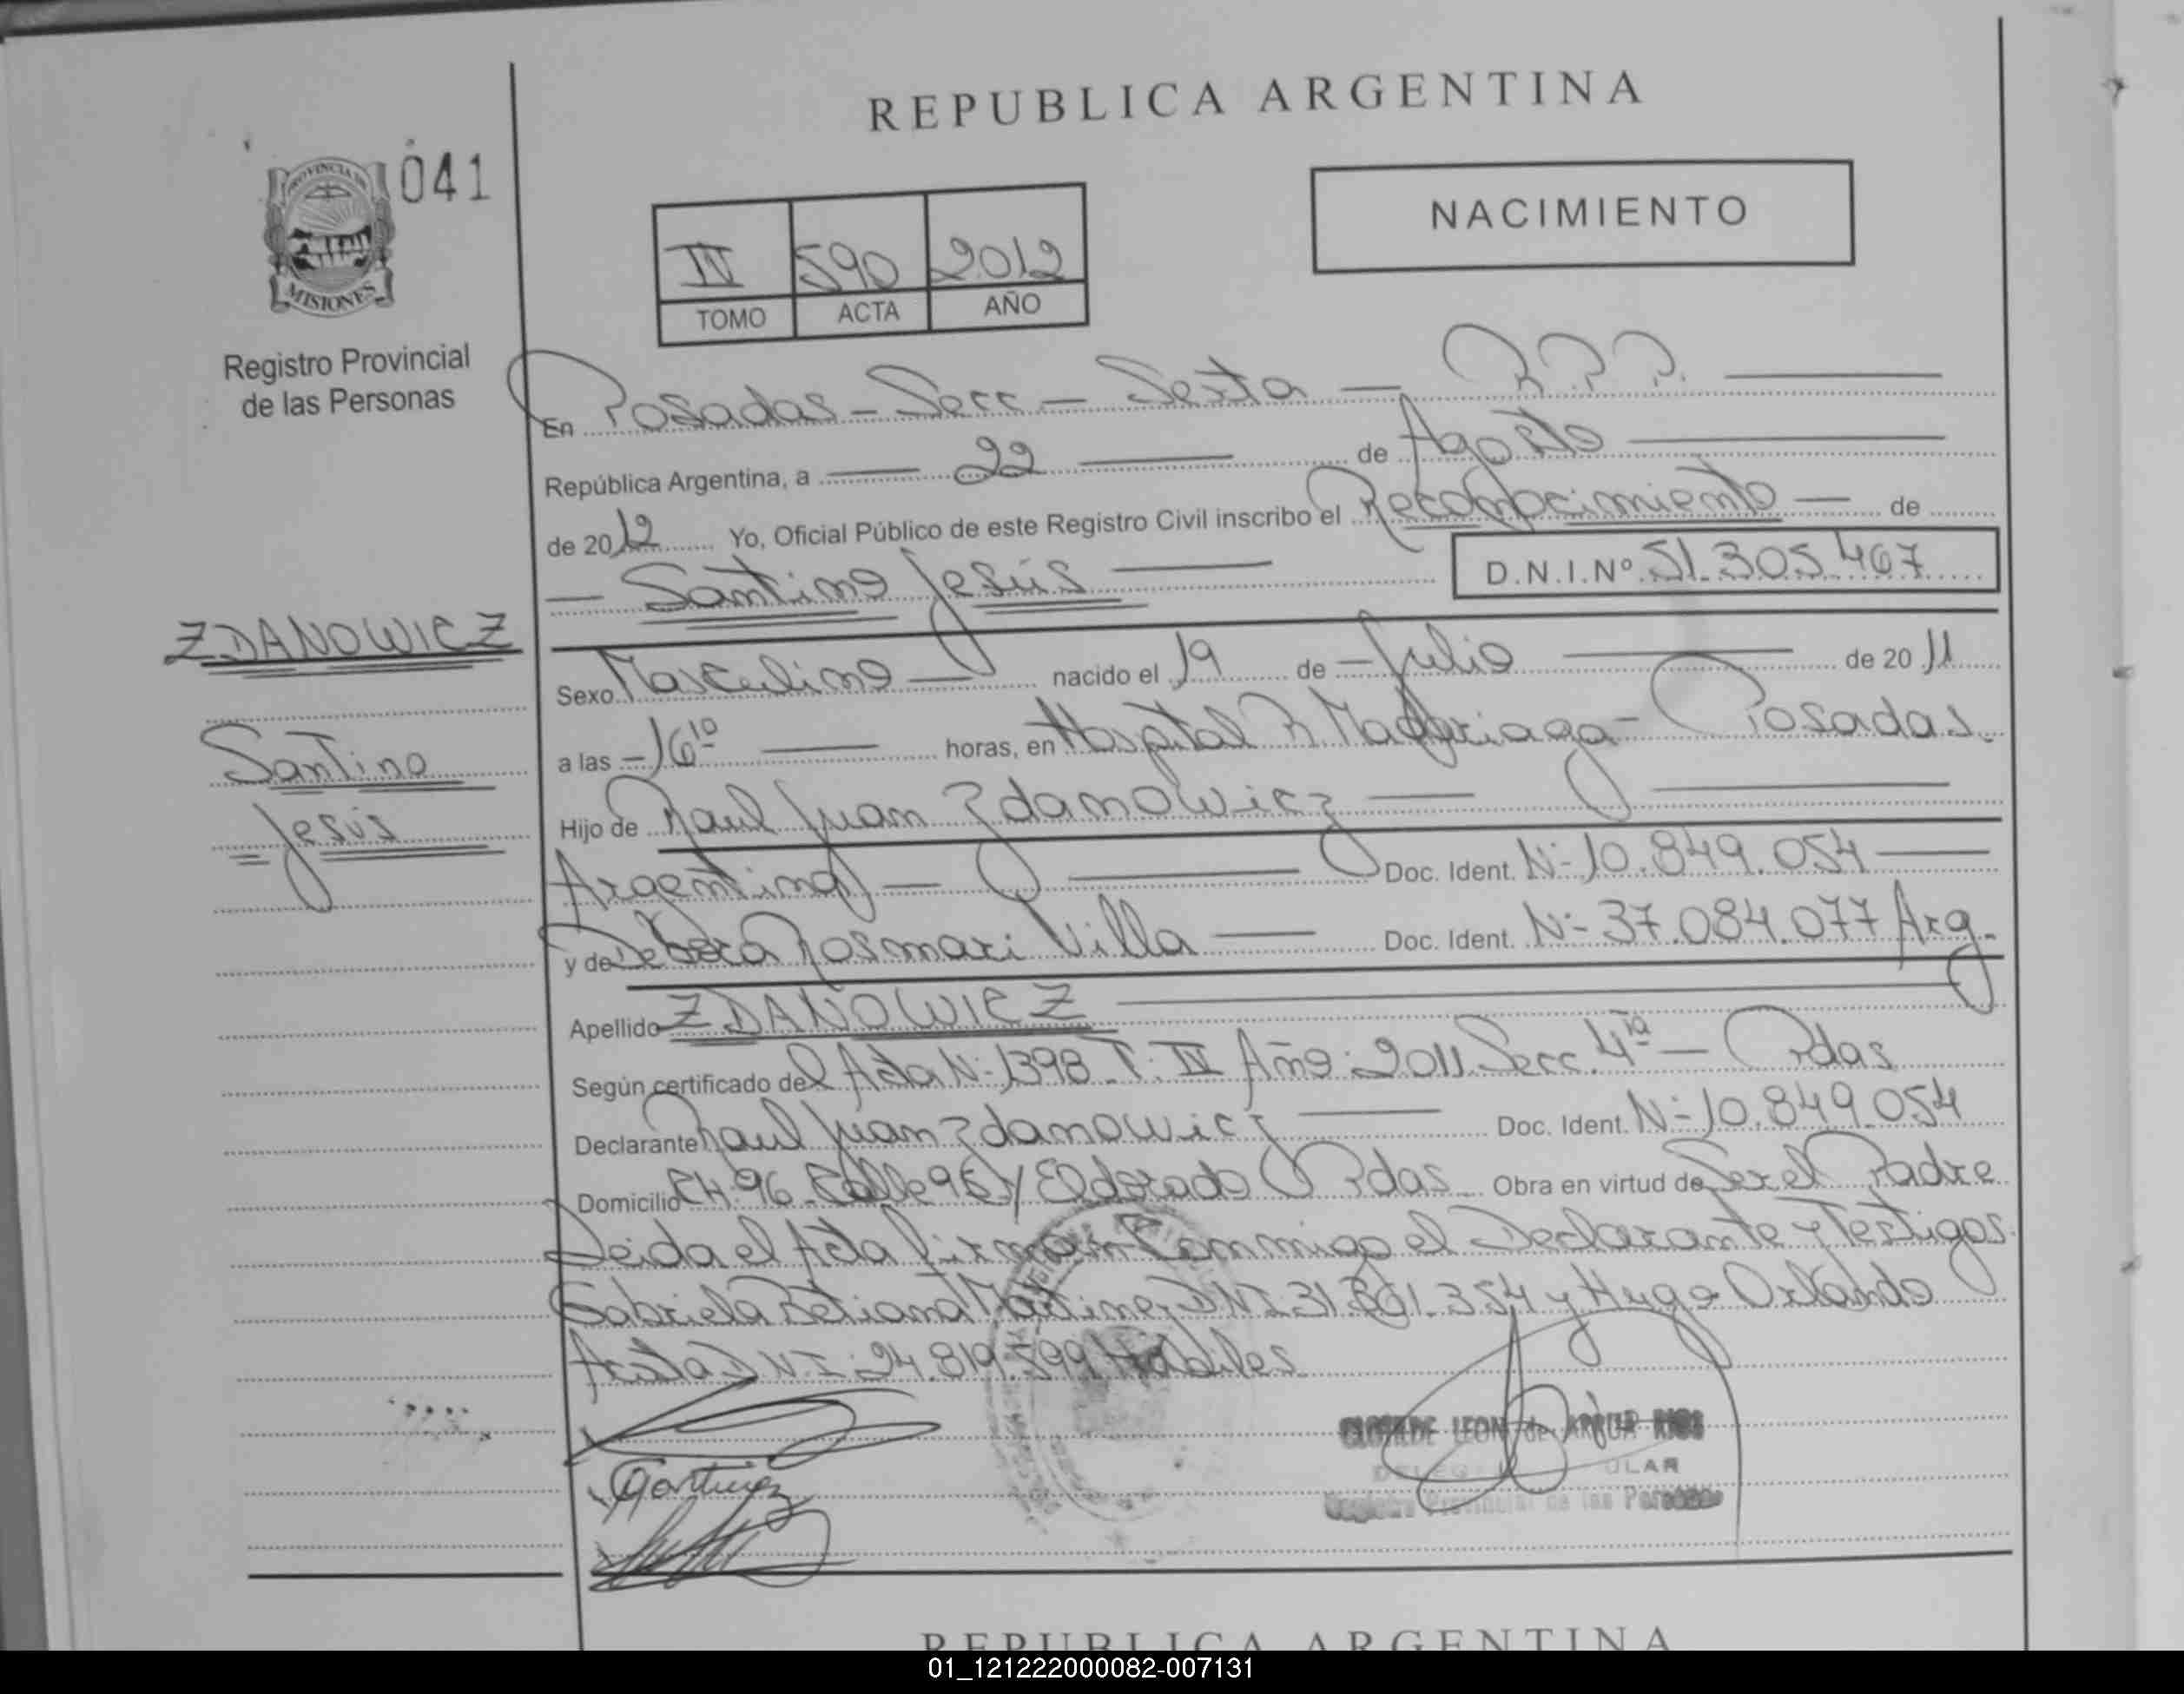 REPUBLICA ARGENTINA
041
PROVINCIA DE
MISIONES
Registro Provincial
de las Personas
NACIMIENTO
IV 590 2012
TOMO ACTA AÑO
En Posadas - Secc - Sexta - R.P.P.
República Argentina, a 22 de Agosto
de 2012 Yo, Oficial Público de este Registro Civil inscribo el Reconocimiento de
Santino Jesús D.N.I.Nº 51.305.467
ZDANOWICZ
Santino
Jesús
Sexo Masculino nacido el 19 de Julio de 2011
a las 16 10 horas, en Hospital R. Madariaga - Posadas.
Hijo de Raul Juan Zdanowicz
Argentina Doc. Ident. N- 10.849.054
y de Debora Rosmari Villa Doc. Ident. N- 37.084.077 Arg.
Apellido ZDANOWICZ
Según certificado del Acta N- 1398 T: IV Año: 2011 Secc. 4ta - Pdas
Declarante Raul Juan Zdanowicz Doc. Ident. N- 10.849.054
Domicilio CH. 96 Calle 96 y Eldorado Pdas Obra en virtud de Ser el Padre
Leida el Acta firman Conmigo el Declarante y Testigos
Gabriela Betiana Martinez D.N.I. 31. .354 y Hugo Orlando
D.N.I: 24.819.599 Habiles
Martinez
LEON de ARRUA RIOS
Registro Provincial de las Personas
REPUBLICA ARGENTINA
01_121222000082-007131